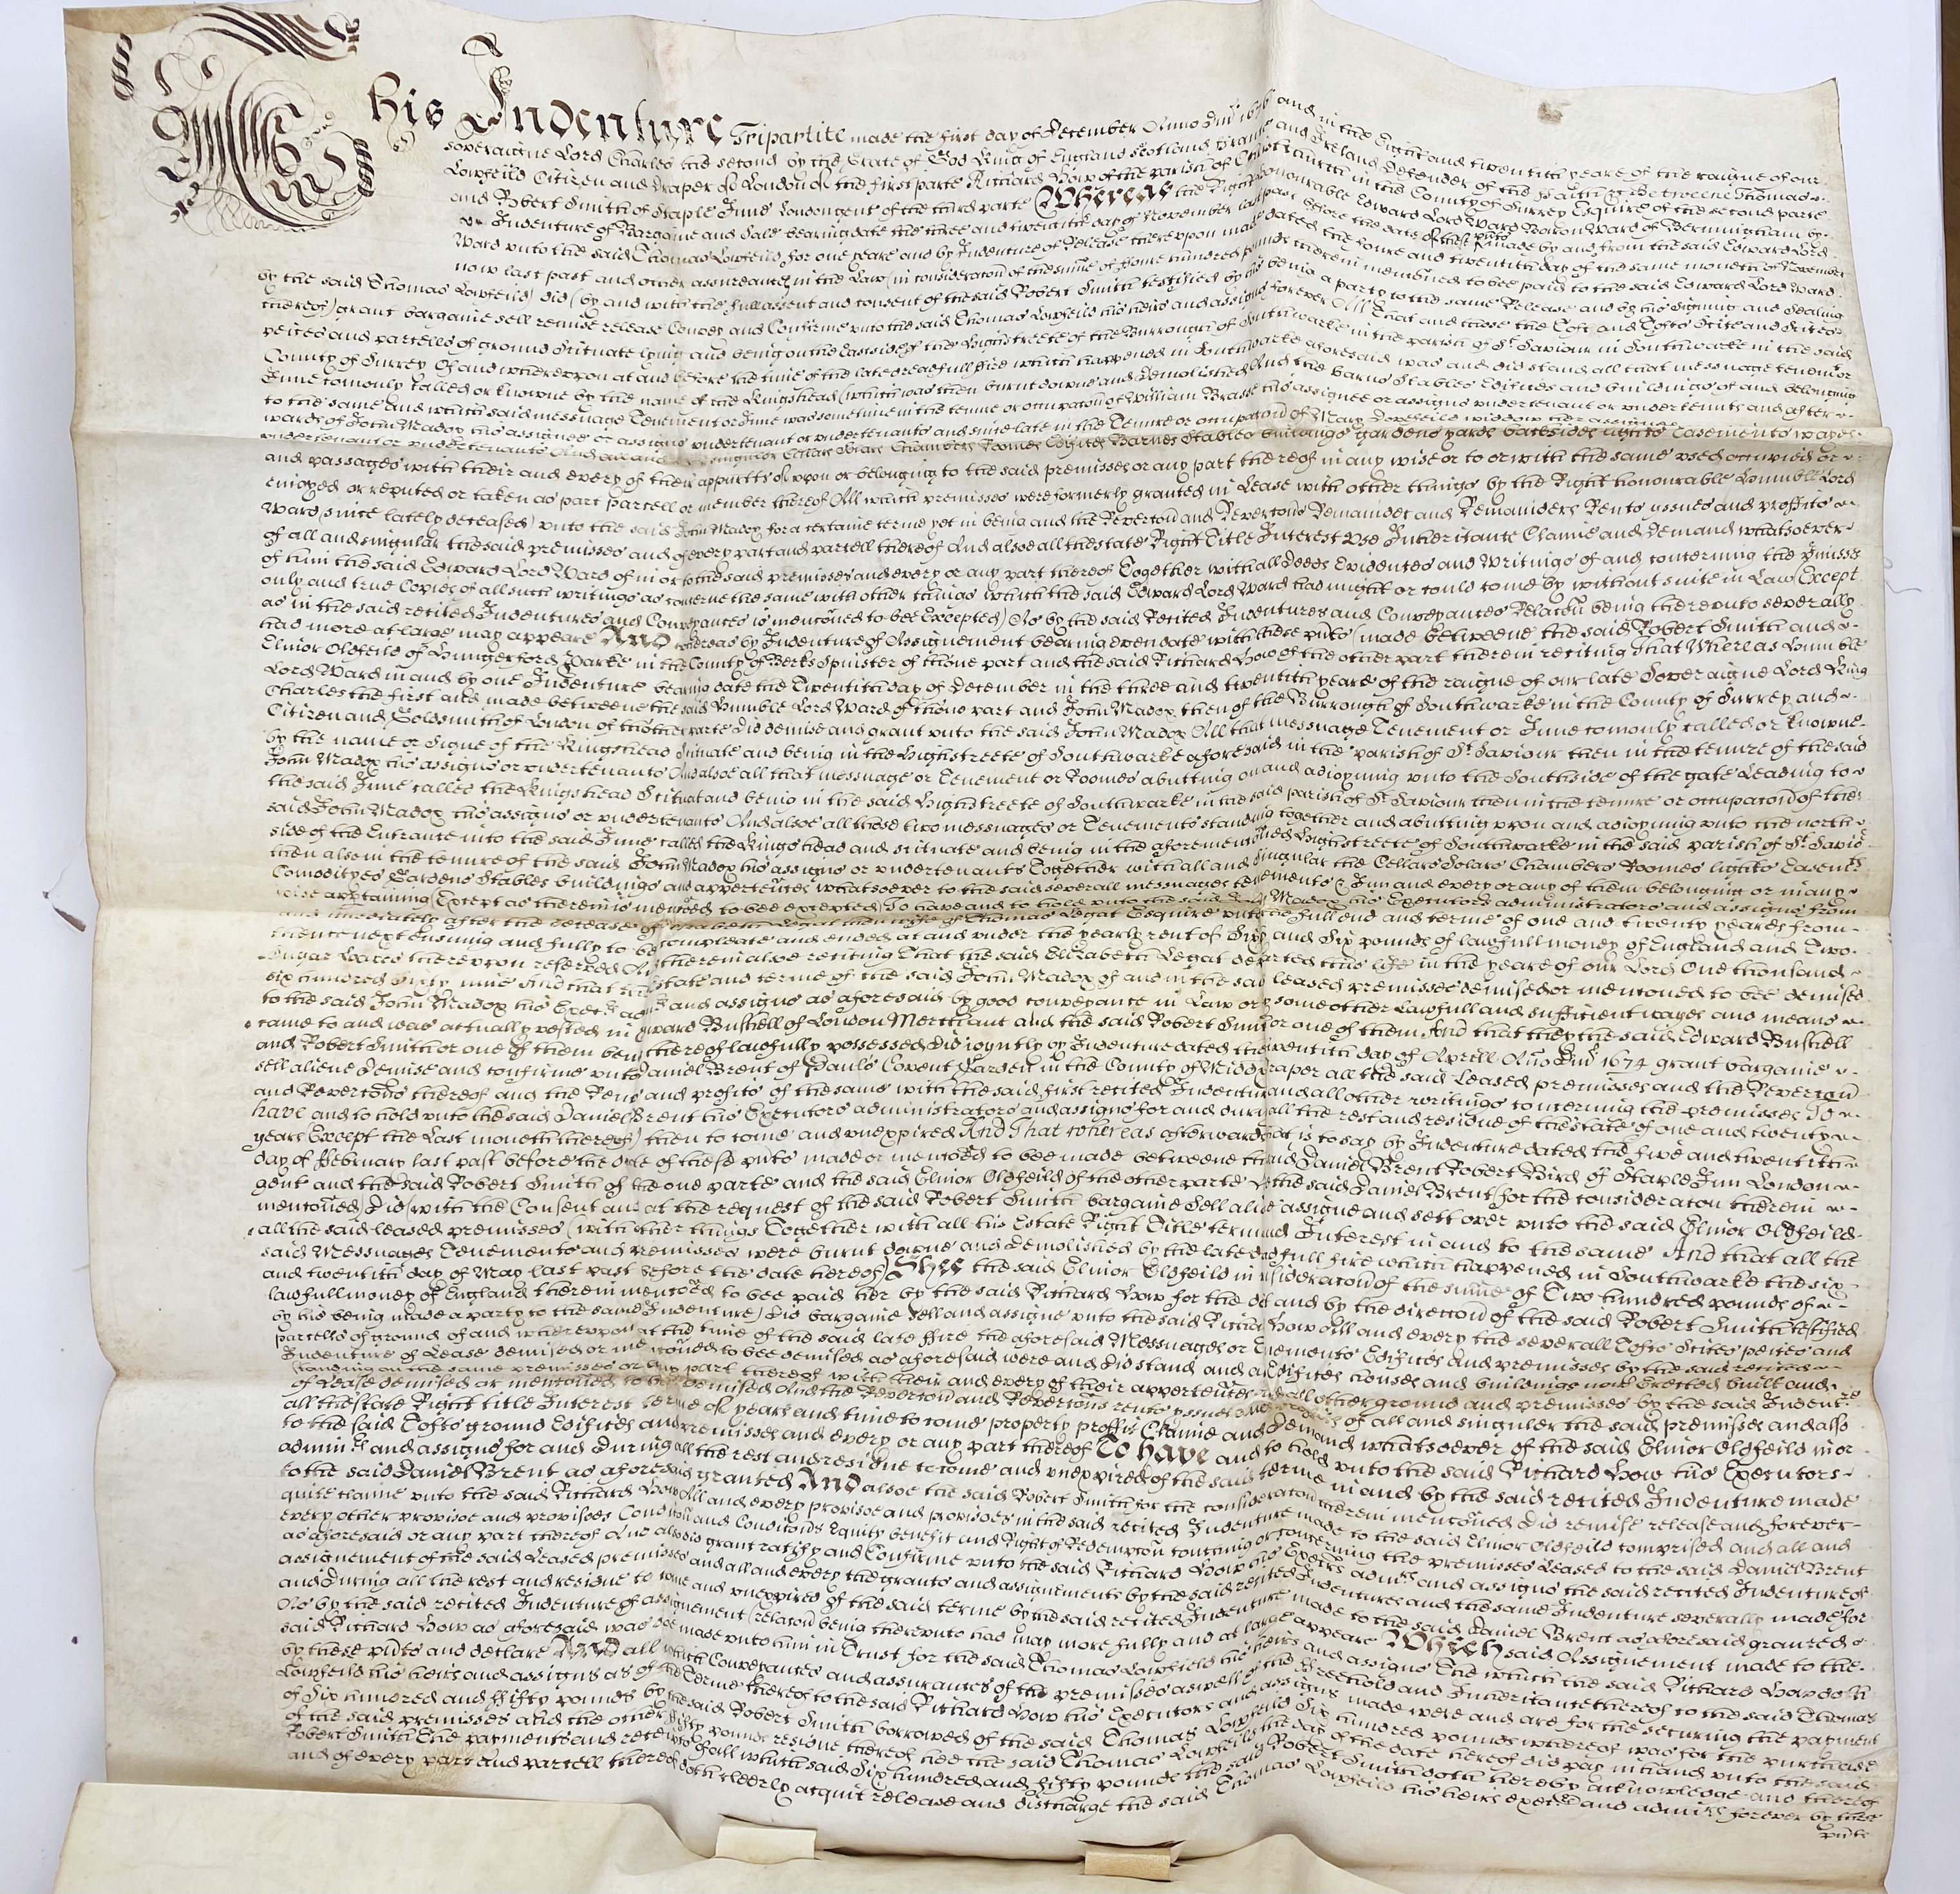 This Indenture Tripartite made the first day of December Anno Dni 1676 and in the Eight and twentith yeare of the raigne of our
soveraigne Lord Charles the second by the Grace of God King of England Scotland France and Ireland Defender of the Faith &c Betweene Thomas
Lowfeild Citizen and Draper of London of the first parte Richard How of the parish of Christchurch in the County of Surrey Esquire of the second parte
and Robert Smith of Staple Inne London gent of the third parte Whereas the Right honourable Edward Lord Ward Baron Ward of Bermingham by
Indenture of Bargaine and Sale bearing date the three and twentith day of November last past before the date of these pnts made by and from the said Edward Lord
Ward unto the said Thomas Lowfeild for one yeare and by Indenture of Release thereupon made dated the foure and twentith day of the same moneth of November
now last past and other assurances in the Law (in consideracon of the summe of hundred pounds therein menconed to bee paid to the said Edward Lord Ward
by the said Thomas Lowfeild) did (by and with the full assent and consent of the said Robert Smith testified by his being a party to the same Release and by his signing and sealing
thereof) grant bargaine sell remise release Convey and Confirme unto the said Thomas Lowfeild his heirs and assigns forever All That and those the Toft and Tofts Scite and Scites
peices and parcells of ground Scituate lying and being on the East side of the Highstreete of the Burrough of Southwarke in the parish of St Saviour in Southwarke in the said
County of Surrey Of and whereupon at and before the time of the late dreadfull fire which happened in Southwarke aforesaid was and did stand all that messuage tenemt or
Inne comonly called or knowne by the name of the Kingshead (which was then burnt downe and demolished) And the Barns Stables Edifices and buildings of and belonging
to the same And which said messuage Tenement or Inne was sometime in the tenure or occupacon of William Brasse his assignee or assigns undertenant or undertenants and after
wards of John Madox his assignee or assigns undertenant or undertenants and since late in the Tenure or occupacon of Mary widdow her assignee
undertenant or undertenants And all and singuler Cellars Solars Chambers Roomes Edifices Barnes Stables buildings gardens yards backsides lights easements wayes
and passages with their and every of their appurtts of upon or belonging to the said premisses or any part thereof in any wise or to or with the same used occupied or
enioyed or reputed or taken as part parcell or member thereof All which premisses were formerly granted in Lease with other things by the Right honourable Humble Lord
Ward (since lately deceased) unto the said John Madox for a certaine terme yet in being and the Revercon and Revercons Remainder and Remainders Rents yssues and proffits
of all and singular the said premisses and of every part and parcell thereof And alsoe all the state Right Title Interest Use Inheritance Claime and Demand whatsoever
of him the said Edward Lord Ward of in or to the said premisses and every or any part thereof Together with all Deeds Evidences and Writings of and concerning the pmisses
only and true Copies of all such writings as concerne the same with other things which the said Edward Lord Ward had might or could come by without suite in Law (Except
as in the said recited Indentures and Conveyances is menconed to bee Excepted) As by the said Recited Indentures and Conveyances Relacon being thereunto severally
had more at large may appeare And whereas by Indenture of Assignement bearing even date with these pnts (made betweene the said Robert Smith and
Elinor Oldfeild of Hungerford Parke in the County of Berks Spinister of thone part and the said Richard How of the other part therein reciting That Whereas Humble
Lord Ward in and by one Indenture bearing date the Twentith day of December in the three and twentith yeare of the raigne of our late Soveraigne Lord King
Charles the first and made betweene the said Humble Lord Ward of thone part and John Madox then of the Burrough of Southwarke in the County of Surrey and
Citizen and Goldsmith of London of thother parte did demise and grant unto the said John Madox All that messuage Tenement or Inne comonly called or knowne
by the name or Signe of the Kingshead Scituate and being in the Highstreete of Southwarke aforesaid in the parish of St Saviour then in the tenure of the said
John Madox his assigns or undertenants And alsoe all that messuage or Tenement or Roomes abutting on and adioyning unto the Southside of the gate Leading to
the said Inne called the Kingshead Scituat and being in the said Highstreete of Southwarke in the said parish of St Saviour then in the tenure or occupacon of the
said John Madox his assigns or undertenants And alsoe all those two messuages or Tenements standing together and abutting upon and adioyning unto the north
side of the Entrance into the said Inne called the Kings head and scituate and being in the aforemenconed Highstreete of Southwarke in the said parish of St Savior
then also in the tenure of the said John Madox his assigns or undertenants Together with all and singular the Cellars Solars Chambers Roomes lights Easemts
Comodityes Gardens Stables buildings and appurtences whatsoever to the said severall messuages tenements & Inn and every or any of them belonging or in any
wise appertaining (Except as therein is menconed to bee excepted) To have and to hold unto the said John Madox his Executors administrators and assigns from
and imediately after the decease of Elizabeth Legat then wife of Thomas Legat Esquire unto the full end and terme of one and twenty yeares from
thence next ensuing and fully to be compleate and ended at and under the yearly rent of Sixty and Six pounds of lawfull money of England and Two
Sugar Loaves thereupon reserved And therein alsoe reciting That the said Elizabeth Legat departed this life in the yeare of our Lord One thousand
six hundred Sixty nine And that the state and terme of the said John Madox of and in the said leased premisses demised or menconed to bee demised
to the said John Madox his Exectrs and assigns as aforesaid by good conveyance in Law or some other Lawfull and sufficient wayes and means
came to and was actually vested in Edward Bushell of London Merchant and the said Robert Smith or one of them And that they the said Edward Bushell
and Robert Smith or one of them being thereof lawfully possessed did ioyntly by Indenture dated the twentith day of Aprill Ano Dni 1674 grant bargaine
sell aliene demise and confirme unto Daniel Brent of Pauls Covent Garden in the County of Middx Draper all the said Leased premisses and the Revercon
and Revercons thereof and the Rents and profits of the same with the said first recited Indenture and all other writings concerning the premisses To
have and to hold unto the said Daniel Brent his Executors administrators and assigns for and during all the rest and residue of the state of one and twenty
years (Except the Last moneth thereof) then to come and unexpired And That whereas afterwards that is to say by Indenture dated the five and twentith
day of ffebruary last past before the date of these pnts made or menconed to bee made betweene the said Daniel Brent Robert Bird of Staple Inn London
gent and the said Robert Smith of the one parte and the said Elinor Oldfeild of the other parte the said Daniel Brent (for the consideracon therein
menconed) Did (with the Consent and at the request of the said Robert Smith bargaine Sell aliene assigne and sett over unto the said Elinor Oldfeild
all the said leased premisses (with other things Together with all his Estate Right Title terme and Interest in and to the same And that all the
said Messuages Tenements and premisses were burnt downe and demolished by the late dreadfull fire which happened in Southwarke the six
and twentith day of May last past before the date hereof) Shee the said Elinor Oldfeild in consideracon of the summe of Two hundred pounds of
lawfull money of England therein menconed to bee paid her by the said Richard How for the and by the direccon of the said Robert Smith testified
by his being made a party to the same Indenture) Did bargaine Sell and assigne unto the said Richard How All and every the severall Tofts Scites peices and
parcells of ground of and whereupon at the time of the said late ffire the aforesaid Messuages or Tenements Edifices And premisses by the said recited
Indenture of Lease demised or menconed to bee demised as aforesaid were and did stand and all Edifices houses and buildings now Erected built and
standing on the same premisses or any part thereof with them and every of their appurtences and all other ground and premisses by the said Indenture
of Lease demised or menconed to bee demised And the Revercon and Revercons rents yssues and profits of all and singuler the said premisses and also
all the state Right title Interest terme of years and time to come property proffit Claime and Demand whatsoever of the said Elinor Oldfeild in or
to the said Tofts ground Edifices and premisses and every or any part thereof To have and to hold unto the said Richard How his Executors
adminrs and assigns for and during all the rest and residue to come and unexpired of the said terme in and by the said recited Indenture made
to the said Daniel Brent as aforesaid granted And alsoe the said Robert Smith for the consideracon therein menconed did remise release and forever
quite claime unto the said Richard How All and every provisoe and provisoes in the said recited Indenture made to the said Elinor Oldfeild comprised and all and
every other provisoe and provisoes Condicon and Condicons Equity benefit and Right of Redempcon touching or concerning the premisses Leased to the said Daniel Brent
as aforesaid or any part thereof And alsoe did grant ratify and Confirme unto the said Richard How his Exectrs admrs and assigns the said recited Indenture of
assignement of the said Leased premisses and all and every the grants and assignements by the said recited Indentures and the same Indenture severally made for
and during all the rest and residue to come and unexpired of the said terme by the said recited Indenture made to the said Daniel Brent as aforesaid granted
As by the said recited Indenture of assignement (relacon being thereunto had may more fully and at large appeare Which said Assignement made to the
said Richard How as aforesaid was soe made unto him in Trust for the said Thomas Lowfeild his heirs and assigns The which the said Richard How doth
by these pnts and declare And all which Conveyances and assurances of the premisses aswell of the Freehold and Inheritance thereof to the said Thomas
Lowfeild his heirs and assigns as of the Terme thereof to the said Richard How his Executors and assigns made were and are for the securing the payment
of Six hundred and fifty pounds by the said Robert Smith borrowed of the said Thomas Lowfeild Six hundred pounds whereof was for the purchase
of the said premisses and the other fifty pounds residue thereof hee the said Thomas Lowfeild the day of the date hereof did pay in hand unto the said
Robert Smith The payments and receipts of all which said Six hundred and fifty pounds the said Robert Smith doth hereby acknowledge and thereof
and of every part and parcell thereof doth cleerly acquit release and discharge the said Thomas Lowfeild his heirs exectrs and admrs forever by these
pnts